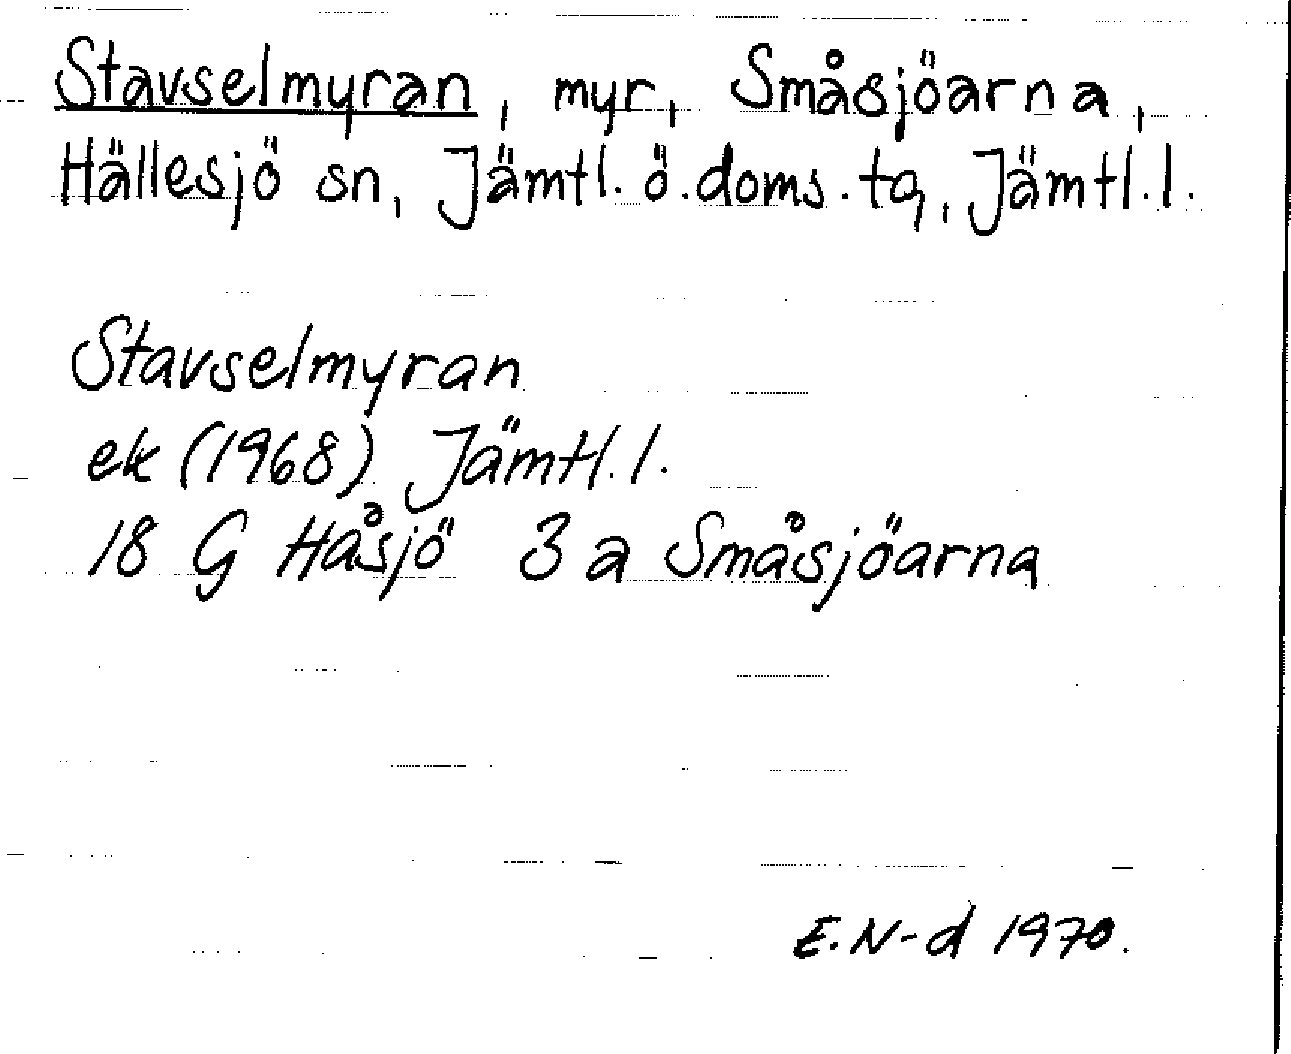 Stavselmyran, myr, Småsjöarna,
Hällesjö sn, Jämtl. ö. doms. tg, Jämtl. l.
Stavselmyran
ek (1968) Jämtl. l.
18 G Håsjö 3 a Småsjöarna
E. N-d 1970.